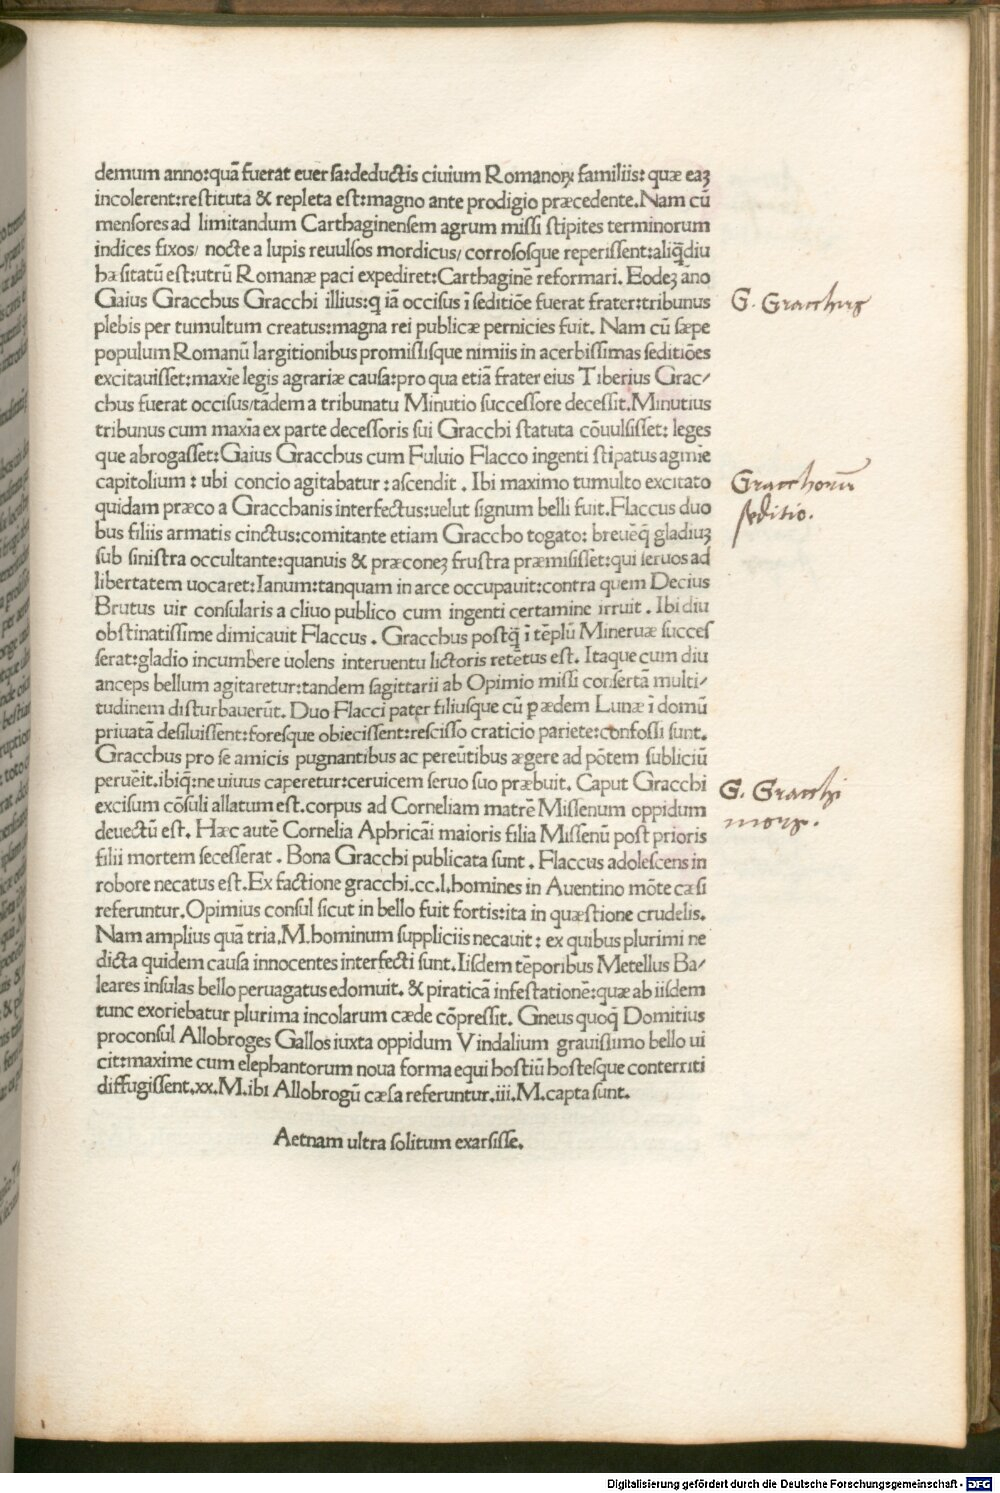 demum anno:quā fuerat euer sa:deductis ciuium Romanoꝝ familiis: quæ eaꝫ
incolerent:restituta & repleta est:magno ante prodigio præcedente. Nam cū
mensores ad limitandum Carthaginensem agrum missi stipites terminorum
indices fixos/ nocte a lupis reuulsos mordicus/ corrososque reperissent:aliq̄diu
hæsitatū est:utrū Romanæ paci expediret:Carthaginē reformari. Eodeꝫ āno
Gaius Gracchus Gracchi illius:q iā occisus ī seditiōe fuerat frater:tribunus
plebis per tumultum creatus:magna rei publicæ pernicies fuit. Nam cū sæpe
populum Romanū largitionibus promissisque nimiis in acerbissimas seditiōes
excitauisset:maxīe legis agrariæ causa:pro qua etiā frater eius Tiberius Grac/
chus fuerat occisus/tādem a tribunatu Minutio successore decessit. Minutius
tribunus cum maxīa ex parte decessoris sui Gracchi statuta cōuulsisset: leges
que abrogasset:Gaius Gracchus cum Fuluio Flacco ingenti stipatus agmīe
capitolium : ubi concio agitabatur : ascendit . Ibi maximo tumulto excitato
quidam præco a Gracchanis interfectus:uelut signum belli fuit. Flaccus duo
bus filiis armatis cinctus:comitante etiam Graccho togato: breuēq̄ gladiuꝫ
sub sinistra occultante:quanuis & præconeꝫ frustra præmisisset:qui seruos ad
libertatem uocaret:Ianum:tanquam in arce occupauit:contra quem Decius
Brutus uir consularis a cliuo publico cum ingenti certamine irruit . Ibi diu
obstinatissime dimicauit Flaccus . Gracchus postq̄ ī tēplū Mineruæ succes
serat:gladio incumbere uolens interuentu lictoris retētus est. Itaque cum diu
anceps bellum agitaretur:tandem sagittarii ab Opimio missi consertā multi/
tudinem disturbauerūt. Duo Flacci pater filiusque cū ꝑ ædem Lunæ ī domū
priuatā desiluissent:foresque obiecissent:rescisso craticio pariete:confossi sunt.
Gracchus pro se amicis pugnantibus ac pereūtibus ægere ad pōtem subliciū
peruēit.ibiq;:ne uiuus caperetur:ceruicem seruo suo præbuit. Caput Gracchi
excisum cōsuli allatum est.corpus ad Corneliam matrē Missenum oppidum
deuectū est. Hæc autē Cornelia Aphricāi maioris filia Missēnū post prioris
filii mortem secesserat . Bona Gracchi publicata sunt . Flaccus adolescens in
robore necatus est. Ex factione gracchi.cc.l.homines in Auentino mōte cæsi
referuntur. Opimius consul sicut in bello fuit fortis:ita in quæstione crudelis.
Nam amplius quā tria.M.hominum suppliciis necauit : ex quibus plurimi ne
dicta quidem causa innocentes interfecti sunt. Iisdem tēporibus Metellus Ba/
leares insulas bello peruagatus edomuit. & piraticā infestationē:quæ ab iisdem
tunc exoriebatur plurima incolarum cæde cōpressit. Gneus quoq̄ Domitius
proconsul Allobroges Gallos iuxta oppidum Vindalium grauissimo bello ui
cit:maxime cum elephantorum noua forma equi hostiū hostesque conterriti
diffugissent.xx.M.ibi Allobrogū cæsa referuntur.iii.M.capta sunt.
Aetnam ultra solitum exarsisse.
G. Gracchus
Gracchorum
seditio.
G. Gracchi
mors.
Digitalisierung gefördert durch die Deutsche Forschungsgemeinschaft - DFG